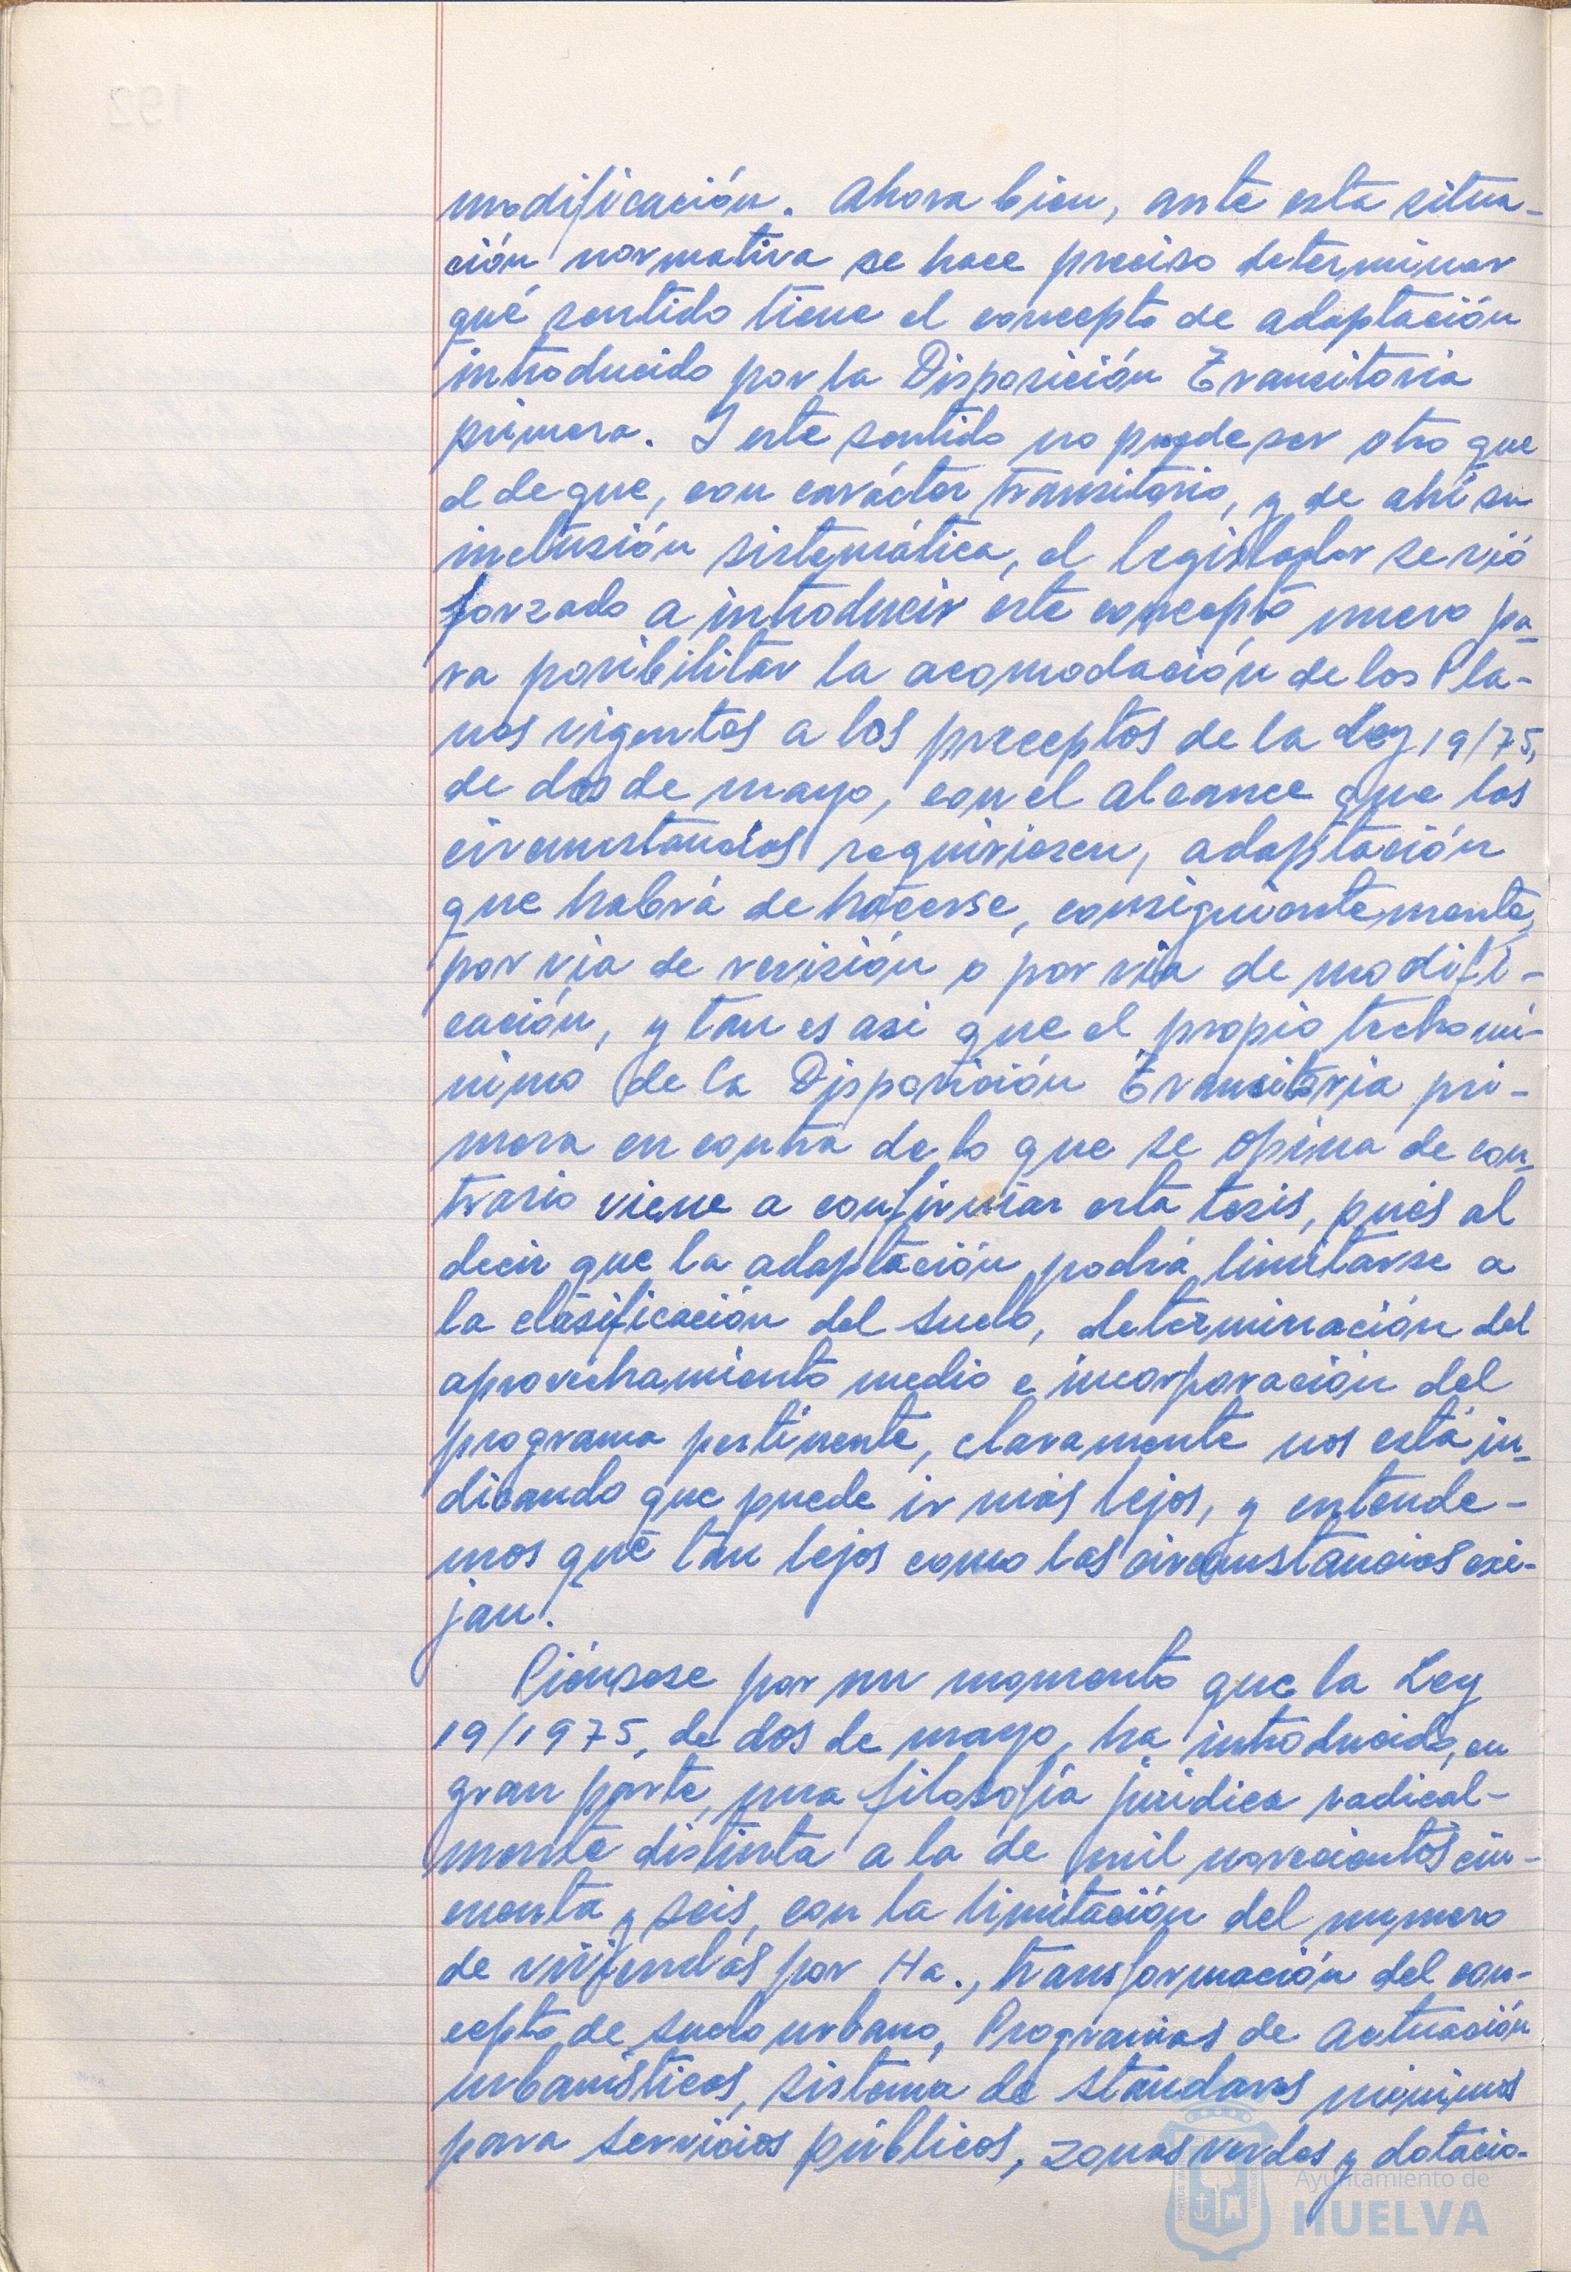 modificación. Ahora bien, ante esta situa-
ción normativa se hace preciso determinar
qué sentido tiene el concepto de adaptación
introducido por la Disposición Transitoria
primera. Y este sentido no puede ser otro que
el de que, con carácter transitorio, y de ahí su
inclusión sistemática, el legislador se vió
forzado a introducir este concepto nuevo pa-
ra posibilitar la acomodación de los Pla-
nes vigentes a los preceptos de la Ley 19/75,
de dos de mayo, con el alcance que las
circunstancias requiriesen, adaptación
que habrá de hacerse, consiguientemente,
por via de revisión o por via de modifi-
cación, y tan es asi que el propio techo mi-
nimo de la Disposición Transitoria pri-
mera en contra de lo que se opina de con-
trario viene a confirmar esta tesis, pués al
decir que la adaptación podrá limitarse a
la clasificación del suelo, determinación del
aprovechamiento medio e incorporación del
programa pertinente, claramente nos está in-
dicando que puede ir más lejos, y entende-
mos que tan lejos como las circunstancias exi-
jan.
Piénsese por un momento que la Ley
19/1975, de dos de mayo, ha introducido, en
gran parte, una filosofía jurídica radical-
mente distinta a la de mil novecientos cin-
cuenta y seis, con la limitación del numero
de viviendas por Ha., transformación del con-
cepto de suelo urbano, Programas de Actuación
urbanísticos, sistema de standares minimos
para servicios públicos, zonas verdes y dotacio-
Ayuntamiento de
HUELVA